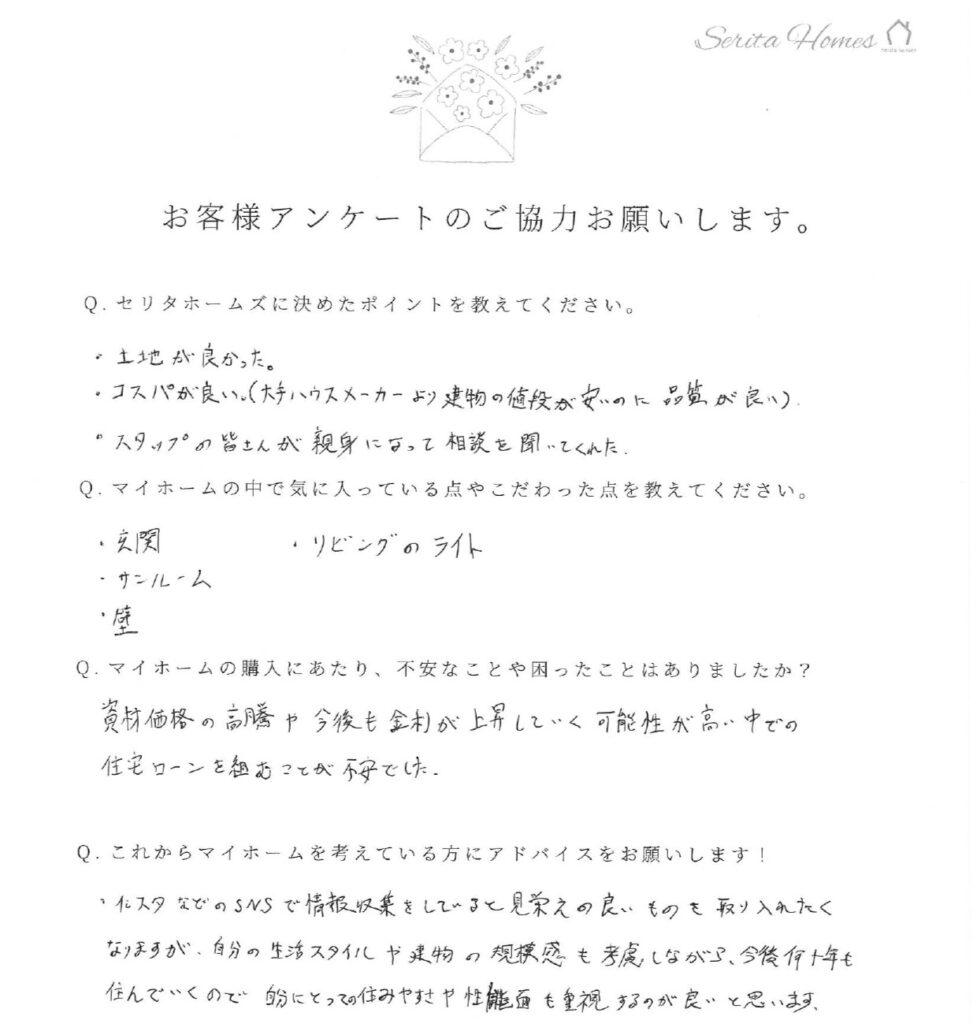 Serita Homes
お客様アンケートのご協力お願いします。
Q. セリタホームズに決めたポイントを教えてください。
・土地が良かった。
・コスパが良い。(大手ハウスメーカーより建物の値段が安いのに品質が良い)
・スタップの皆さんが親身になって相談を聞いてくれた.
Q. マイホームの中で気に入っている点やこだわった点を教えてください。
・玄関 ・リビングのライト
・サンルーム
・壁
Q. マイホームの購入にあたり、不安なことや困ったことはありましたか？
資材価格の高騰や今後も金利が上昇していく可能性が高い中での
住宅ローンを組むことが不安でした.
Q. これからマイホームを考えている方にアドバイスをお願いします！
・インスタなどのSNSで情報収集をしていると見栄えの良いものを取り入れたく
なりますが、自分の生活スタイルや建物の規模感も考慮しながら、今後何十年も
住んでいくので自分にとっての住みやすさや性能面も重視するのが良いと思います.